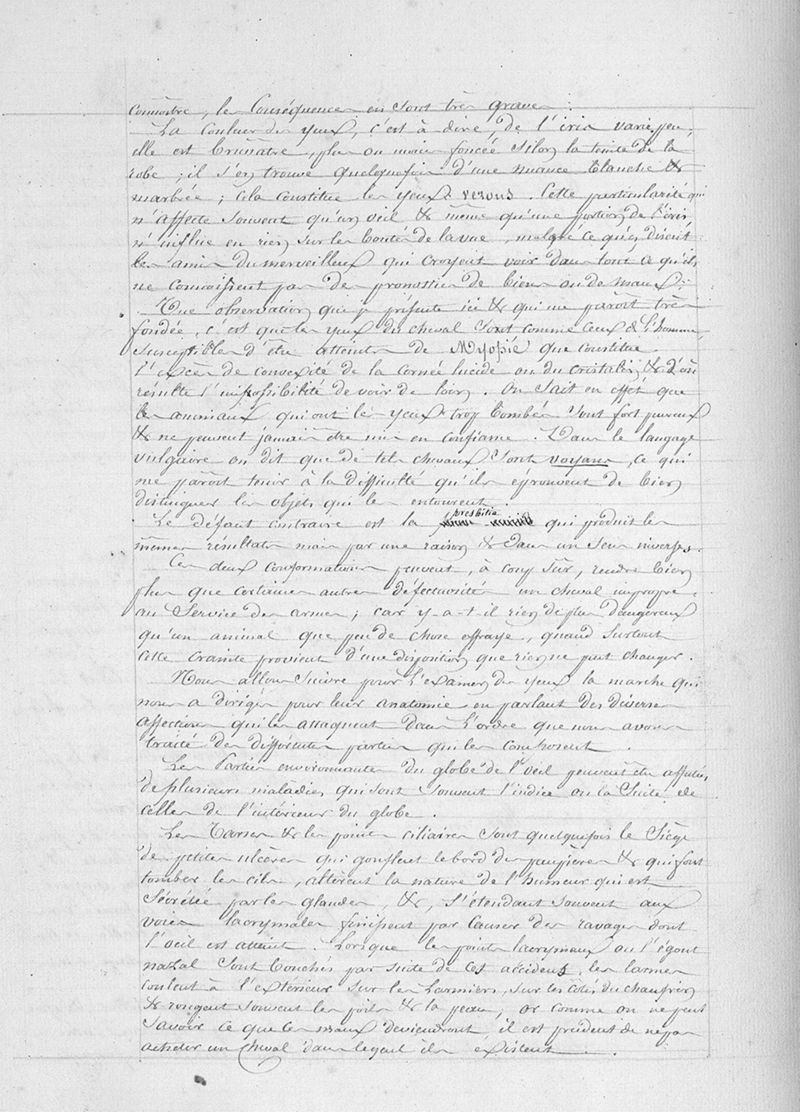 connoître, les Conséquences en sont très graves.
La Couleur des yeux, c'est à dire, de l'iris varie peu,
elle est brunatre, plus ou moins foncée selon la teinte de la
robe ; il s'en trouve quelquefois d'une nuance blanche &
marbrée ; cela constitue les yeux verons. Cette particularité qui
n'affecte souvent qu'un oeil & même qu'une portion de l'iris
n'influe en rien sur la bonté de la vue, malgré ce qu'en disent
les amis du merveilleux qui croyent voir dans tout ce qu'ils
ne connoissent pas des pronostics de biens ou de maux.
Une observation que je présente ici & qui me paroit très
fondée, c'est que les yeux du cheval sont comme ceux de l'homme,
susceptibles d'être atteints de Myopie que constitue
l'excès de convexité de la cornée lucide ou du cristalin, & d'où
résulte l'impossibilité de voir de loin. On sait en effet que
les animaux qui ont les yeux trop bombés sont fort peureux
& ne peuvent jamais être mis en confiance. Dans le langage
vulgaire on dit que de tels chevaux sont voyans, ce qui
me paroit tenir à la difficulté qu'ils éprouvent de bien
distinguer les objets qui les entourent.
Le défaut contraire est la presbitie qui produit les
mêmes résultats mais par une raison & dans un sens inverses.
Ces deux conformations peuvent, à coup sûr, rendre bien
plus que certaines autres défectuosités un cheval impropre
au Service des armes ; car y-a-t-il rien de plus dangereux
qu'un animal que peu de chose effraye, quand surtout
cette crainte provient d'une disposition que rien ne peut changer.
Nous allons suivre pour l'examen des yeux la marche qui
nous a dirigés pour leur anatomie en parlant des diverses
affections qui les attaquent dans l'ordre que nous avons
traité des différentes parties qui les composent.
Les Parties environnantes du globe de l'oeil peuvent être affectées
de plusieurs maladies qui sont souvent l'indice ou la suite de
celles de l'intérieur du globe.
Les Tarses & les points ciliaires sont quelquefois le siège
de petits ulcères qui gonflent le bord des paupières & qui font
tomber les cils, altèrent la nature de l'humeur qui est
Sécrétée par les glandes, &, s'étendant souvent aux
voies lacrymales finissent par causer des ravages dont
l'oeil est atteint. Lorsque les points lacrymaux ou l'égout
nazal sont bouchés par suite de ces accidens, les larmes
coulent à l'extérieur sur les Larmiers, sur les cotés du chanfrein
& rongent souvent les poils & la peau ; or comme on ne peut
savoir ce que les maux deviendront, il est prudent de ne pas
acheter un cheval dans lequel ils existent.